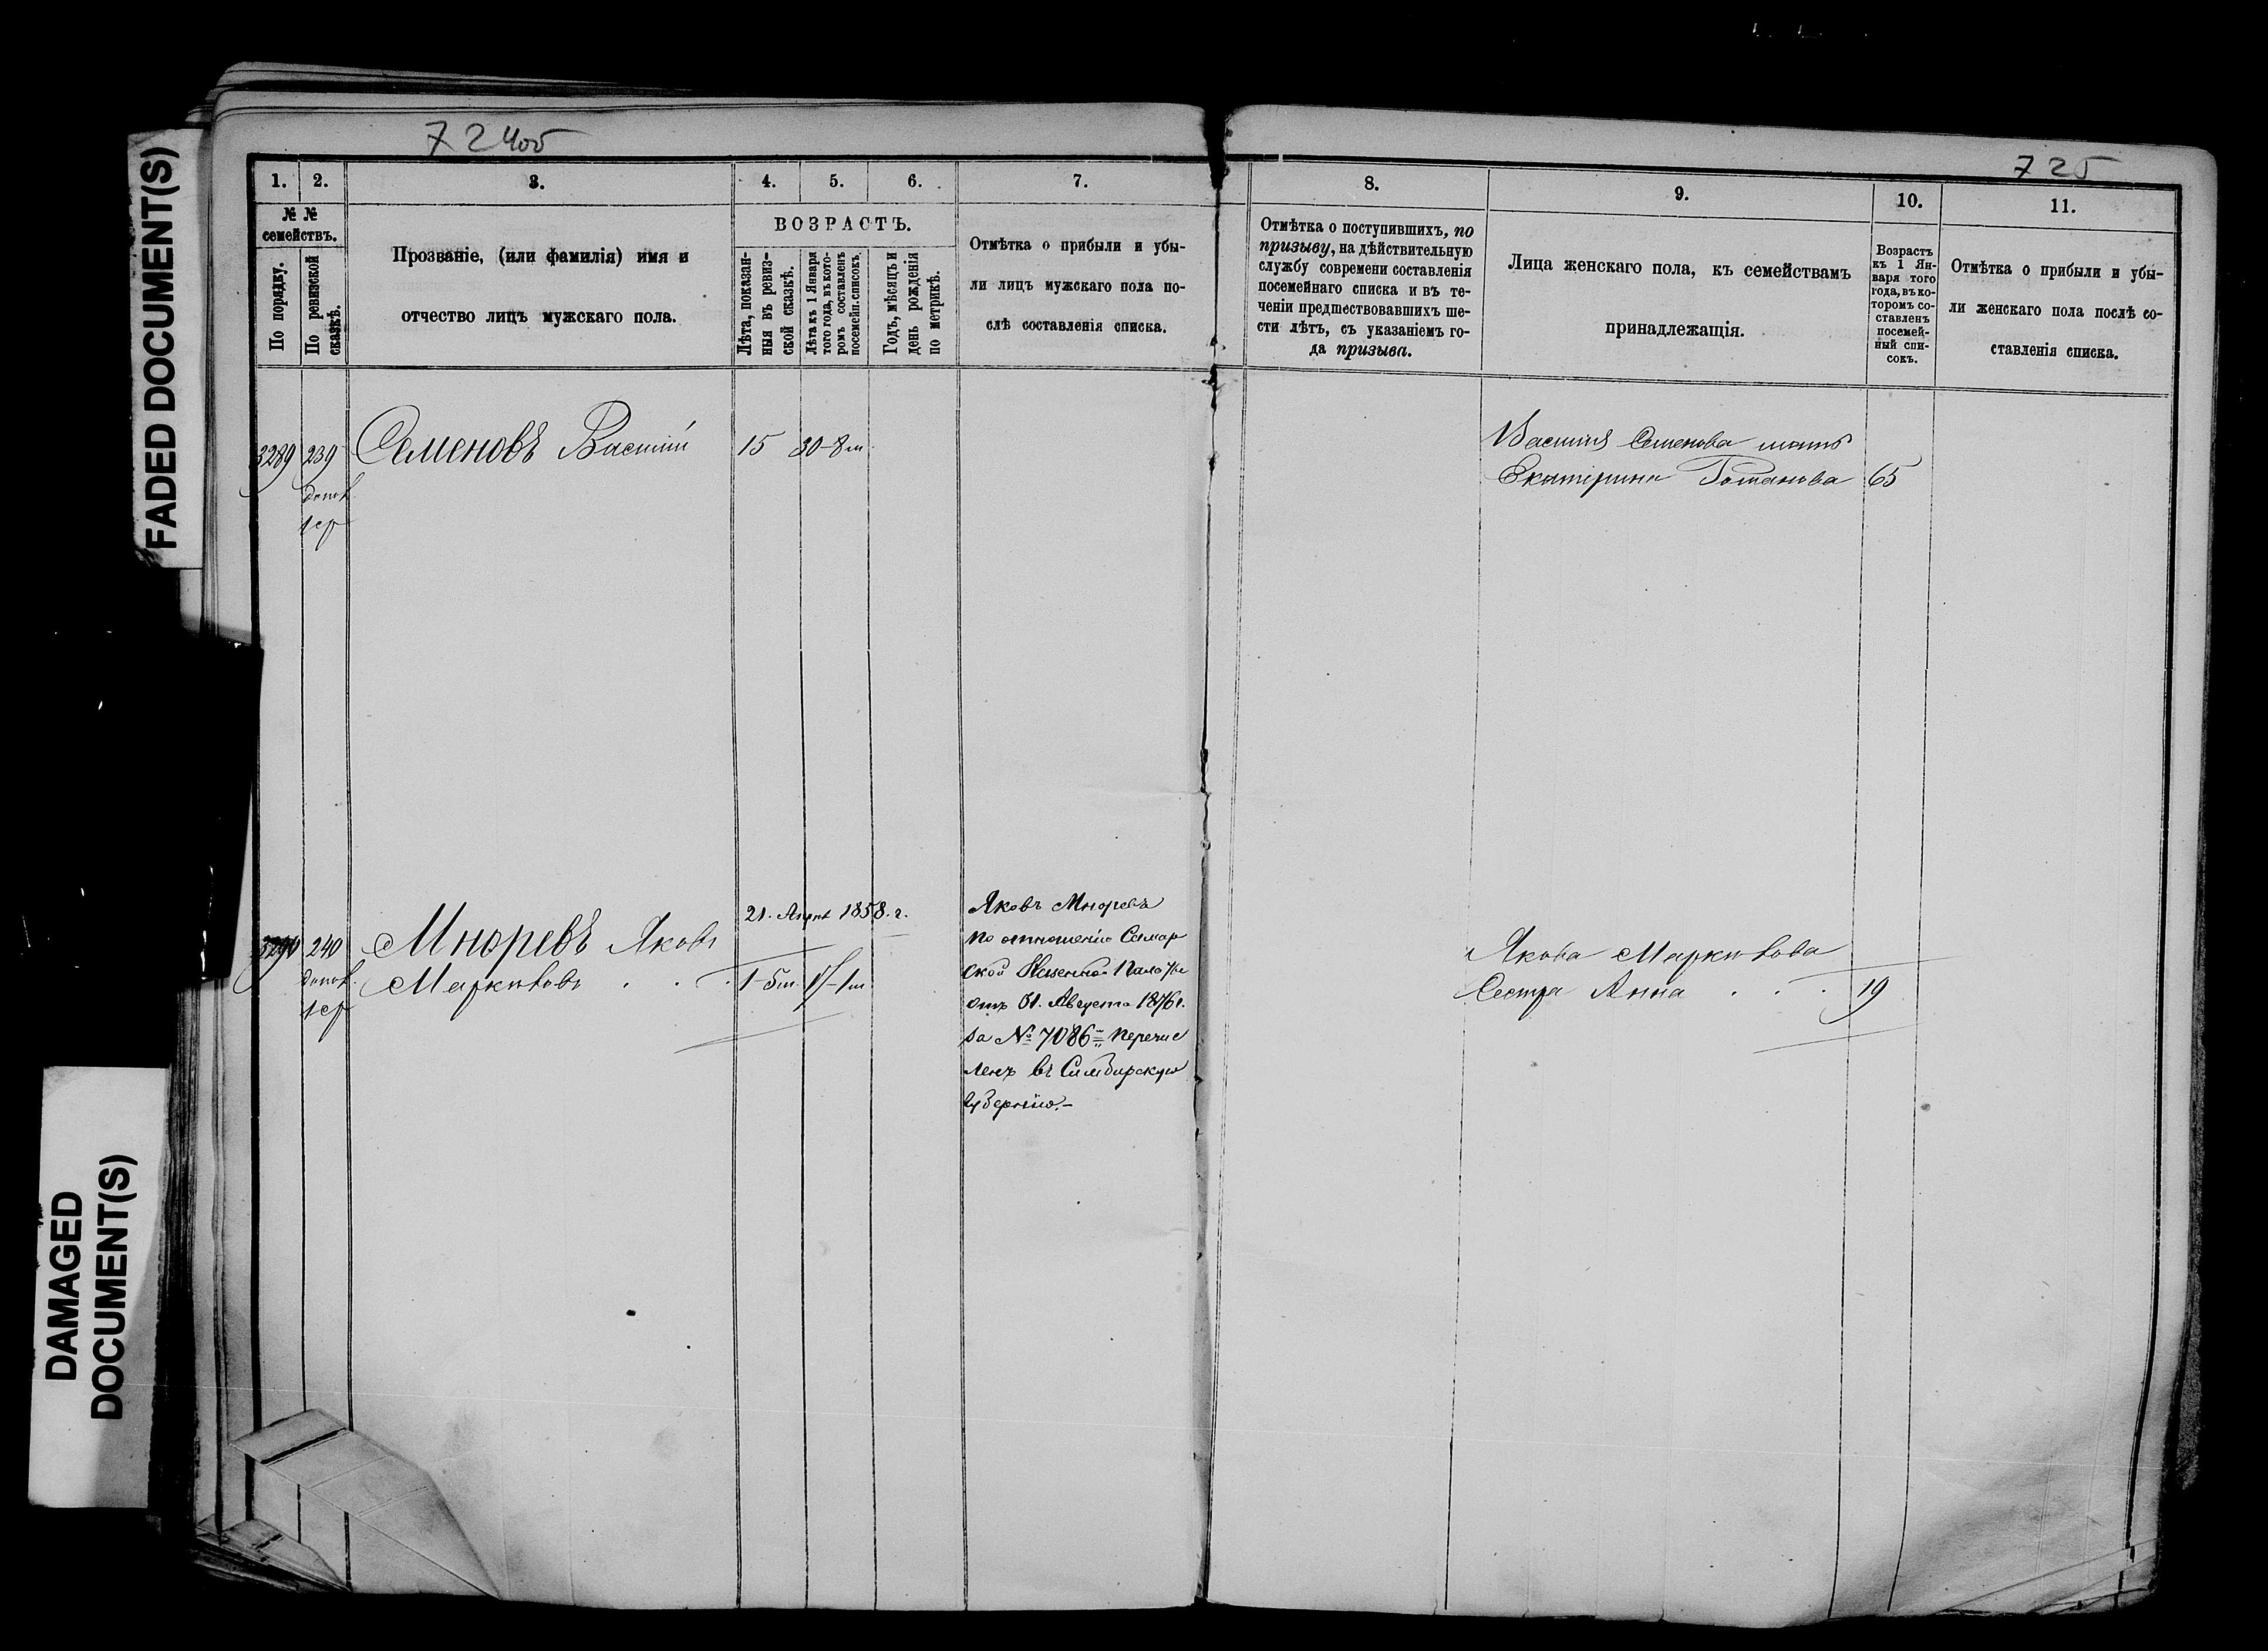 FADED DOCUMENT(S)
DAMAGED
DOCUMENT(S)
72 400
725
1. 2. 3. 4. 5. 6. 7.
№ №
семействъ.
По порядку.
По ревизской
сказкѣ.
Прозваніе, (или фамилія) имя и
отчество лицъ мужскаго пола.
ВОЗРАСТЪ.
Лѣта, показан-
ныя въ ревиз-
ской сказкѣ.
Лѣта къ 1 Января
того года, въ кото-
ромъ составленъ
посемейн. списокъ.
Годъ, мѣсяцъ и
день рожденія
по метрикѣ.
Отмѣтка о прибыли и убы-
ли лицъ мужскаго пола по-
слѣ составленія списка.
8. 9. 10. 11.
Отмѣтка о поступившихъ, по
призыву, на дѣйствительную
службу современи составленія
посемейнаго списка и въ те-
ченіи предшествовавшихъ ше-
сти лѣтъ, съ указаніемъ го-
да призыва.
Лица женскаго пола, къ семействамъ
принадлежащія.
Возрастъ
къ 1 Ян-
варя того
года, въ ко-
торомъ со-
ставленъ
посемей-
ный спи-
сокъ.
Отмѣтка о прибыли и убы-
ли женскаго пола послѣ со-
ставленія списка.
3289 239 Семеновъ Василій 15 30-8м
допол.
1 ср
Василія Семенова мать
Екатерина Романова 65
21. Апрѣл 1858. г.
3290 240 Мноревъ Яковъ
допол. Маркиловъ 1-5м. 17-1м
1 ср
Яковъ Мноревъ
по отношенію Самар
ской Казенной Палаты
отъ 31. Августа 1876 г.
за № 7086 перечис
ленъ въ Симбирскую
губернію.-
Якова Маркилова
Сестра Анна 19